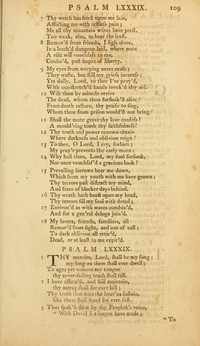 PSALM LXXXIX. 109
7 Thy wrath lies hard upon my soul,
Afflicting me with restless pain;
Me all thy mountain waves have prest,
Too weak, alas, to bear the least.
8 Remov'd from friends, I sigh alone,
In a loath'd dungeon laid, where none
A visit will vouchsafe to me,
Confin'd, past hopes of liberty.
9 My eyes from weeping never cease;
They waste, but still my griefs increase;
Yet daily, Lord, to thee I've pray'd,
With out-stretch'd hands invok'd thy aid.
10 Wilt thou by miracle revive
The dead, whom thou forsook'st alive?
From death restore, thy praise to sing,
Whom thou from prison would'st not bring?
11 Shall the mute grave thy love confess?
A mould'ring tomb thy faithfulness?
12 Thy truth and power renown obtain
Where darkness and oblivion reign?
13 To thee, O Lord, I cry, forlorn;
My pray'r prevents the early morn:
14 Why hast thou, Lord, my soul forsook,
Nor once vouchsaf'd a gracious look?
15 Prevailing sorrows bear me down,
Which from my youth with me have grown;
Thy terrors past distract my mind,
And fears of blacker days behind.
16 Thy wrath hath burst upon my head,
Thy terrors fill my soul with dread;
17 Environ'd as with waves combin'd,
And for a gen'ral deluge join'd.
18 My lovers, friends, familiars, all
Remov'd from sight, and out of call;
To dark oblivion all retir'd,
Dead, or at least to me expir'd.
PSALM LXXXIX.
THY mercies, Lord, shall be my song;
my song on them shall ever dwell;
To ages yet unborn my tongue
thy never-failing truth shall tell.
2 I have affirm'd, and still maintain,
thy mercy shall for ever last;
Thy truth that does the heav'ns sustain,
like them shall stand for ever fast.
3 Thus spak'st thou by thy Prophet's voice,
"With David I a league have made;
"To